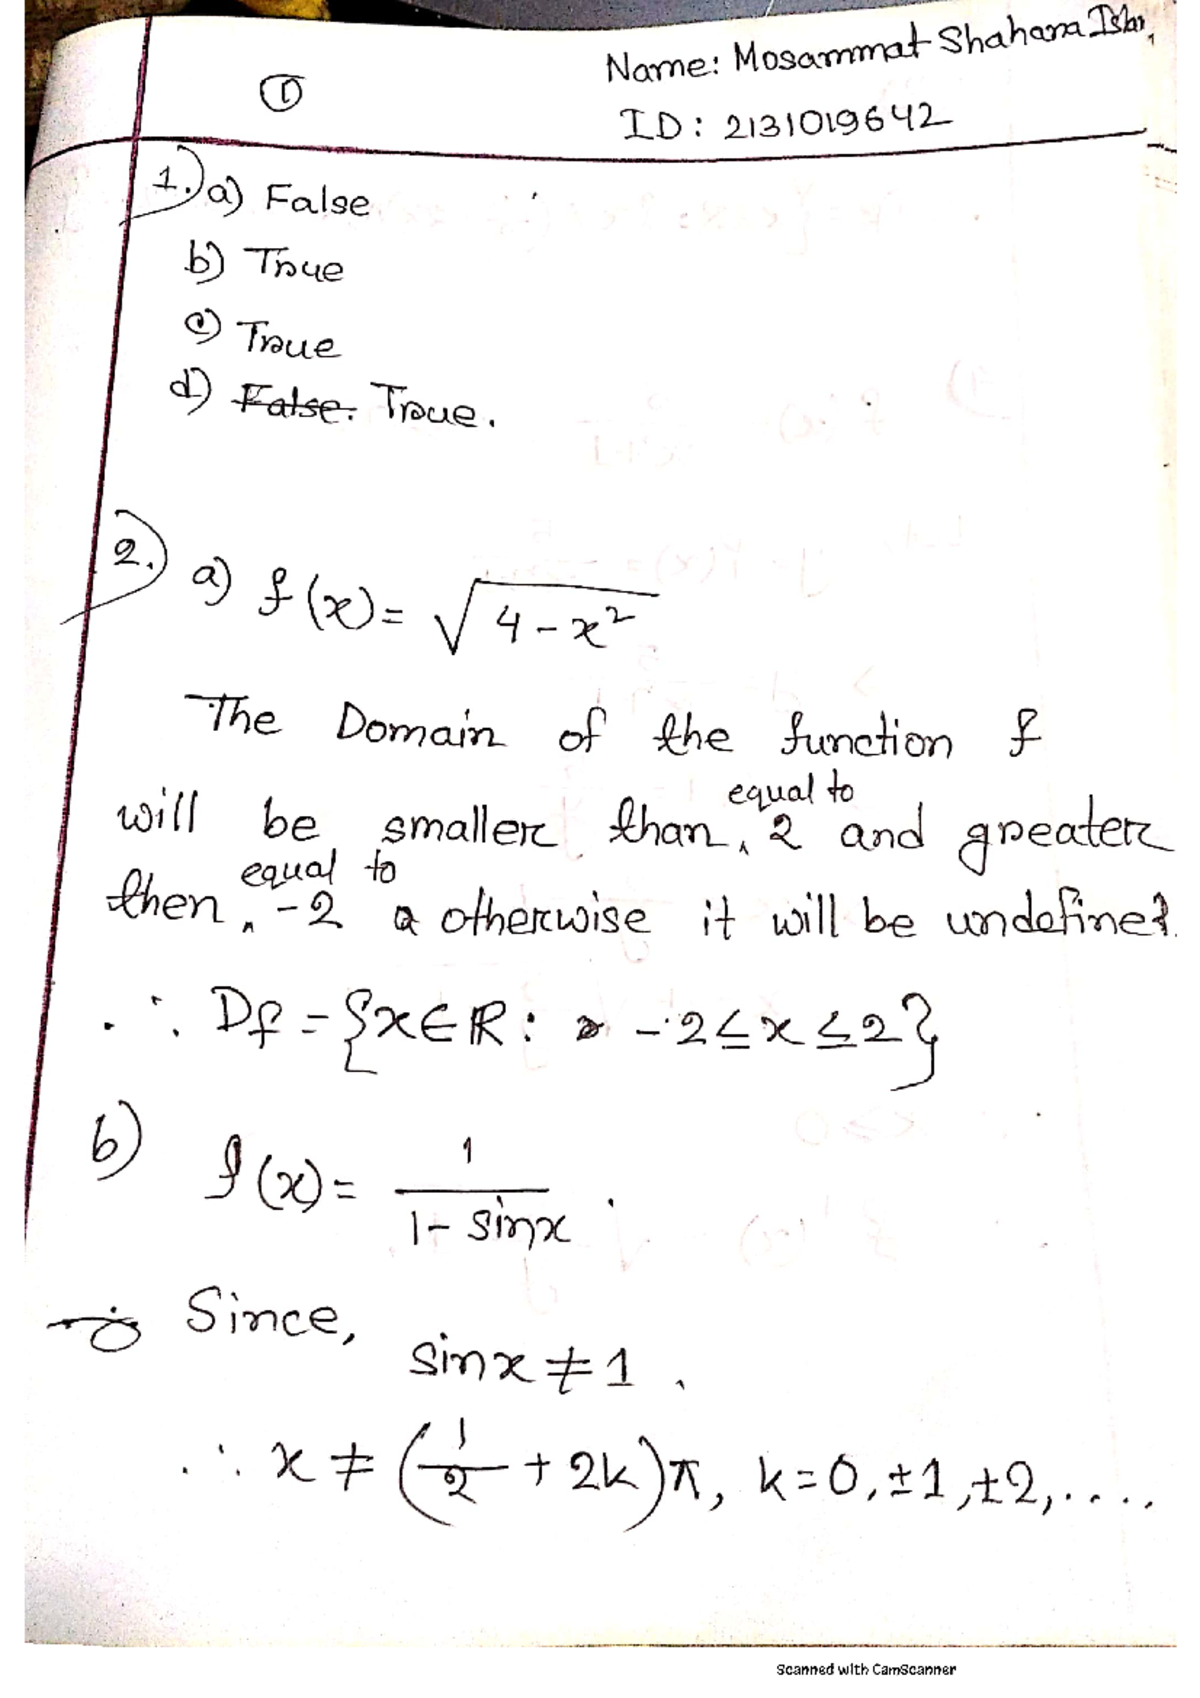 ①
Name: Mosammat Shahana
ID: 2131019642
1.) a) False
b) True
c) True
d) False. True.
2.) a) f(x) = √4-x²
The Domain of the function f
will be smaller than equal to 2 and greater
then equal to -2 otherwise it will be undefined.
∴ Df = {x∈R: -2≤x≤2}
b) f(x) = 1/(1- sinx)
Since,
sinx ≠ 1.
∴ x ≠ (1/2 + 2k)π, k=0,±1,±2,....
Scanned with CamScanner